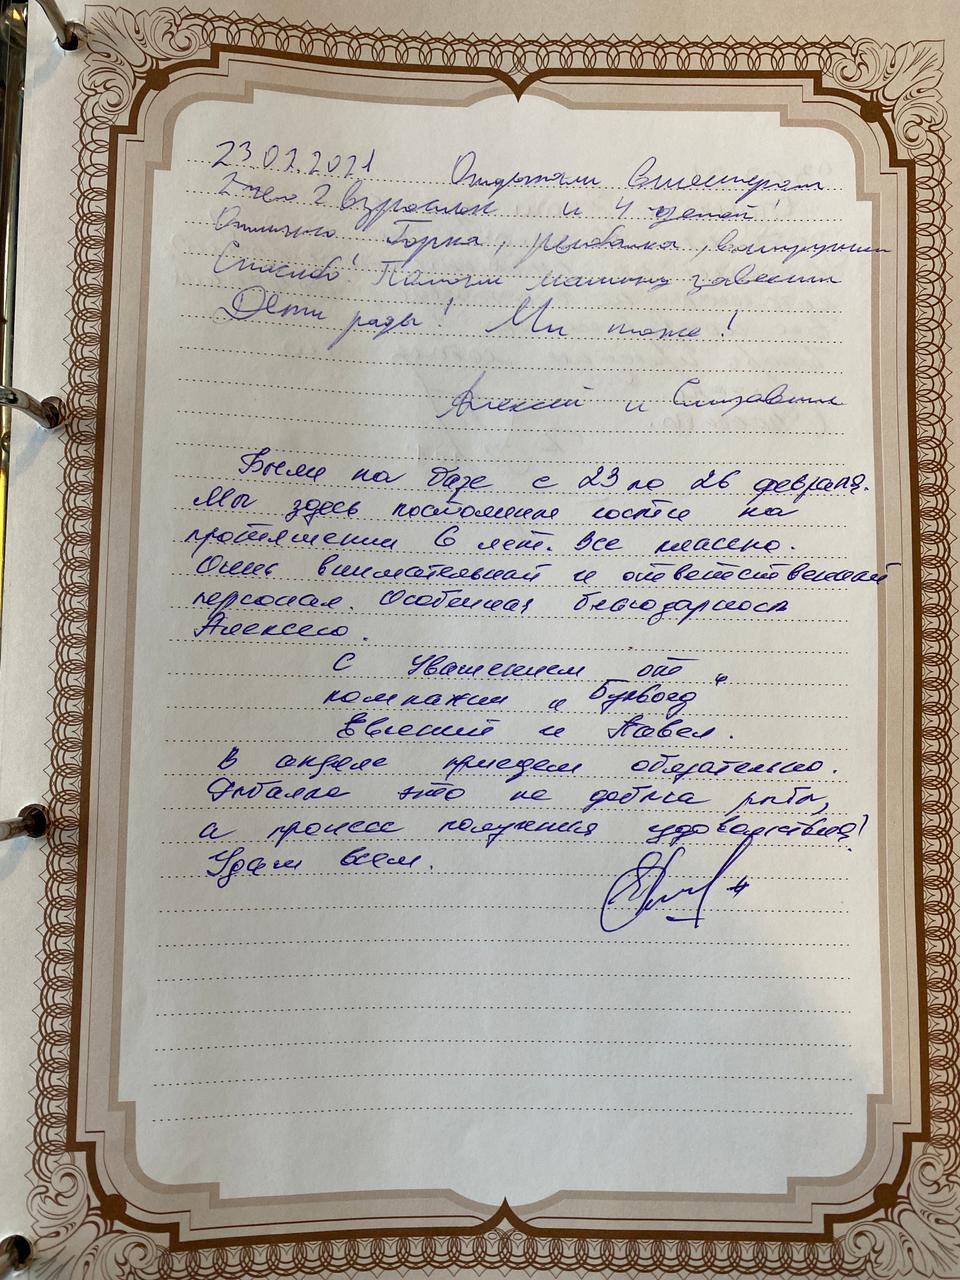 23.02.2021 Отдыхали вшестером
2 чел 2 взрослых и 4 детей!
Отлично Горка, рыбалка,
Спасибо! Помогли машину завести
Дети рады! Мы тоже!
Алексей и Елизавета
Были на базе с 23 по 26 февраля.
Мы здесь постоянные гости на
протяжении 6 лет. Все классно.
Очень внимательный и ответственный
персонал. Особенная благодарность
Алексею.
С уважением от
компании "Буквоед"
Евгений и Павел.
В апреле приедем обязательно.
Рыбалка это не добыча рыбы,
а процесс получения удовольствия!
Удачи всем.